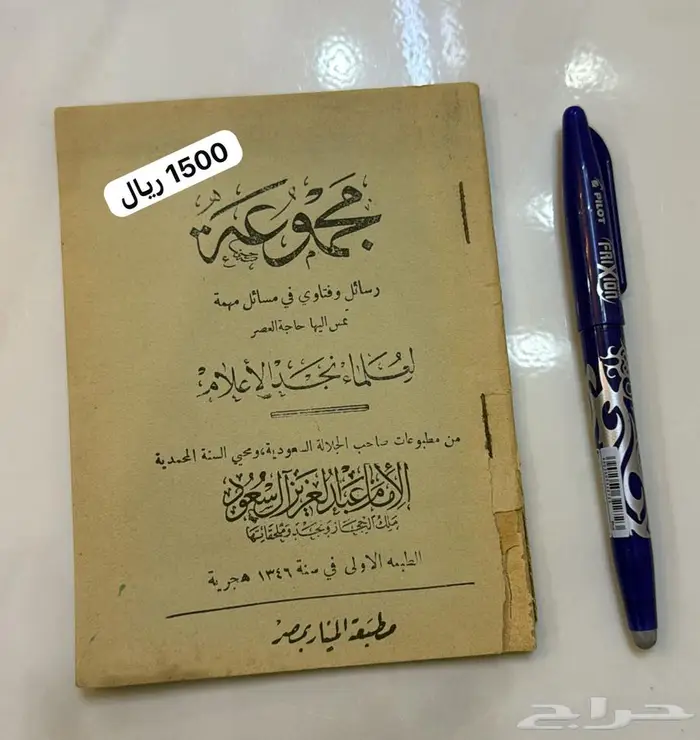 1500 ريال
مجموعة
رسائل وفتاوي في مسائل مهمة
تمس اليها حاجة العصر
لعلماء نجد الأعلام
من مطبوعات صاحب الجلالة السعودية، ومحيي السنة المحمدية
الإمام عبد العزيز آل سعود
ملك الحجاز ونجد وملحقاتها
الطبعه الاولى في سنة ١٣٤٦ هجرية
مطبعة المنار بمصر
PILOT
FRIXION
حراج